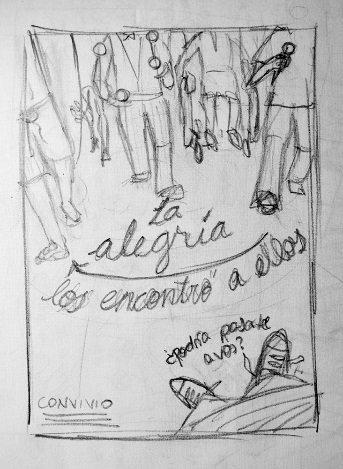 La
alegría
los encontró a ellos
¿podría pasarte
a vos?
CONVIVIO